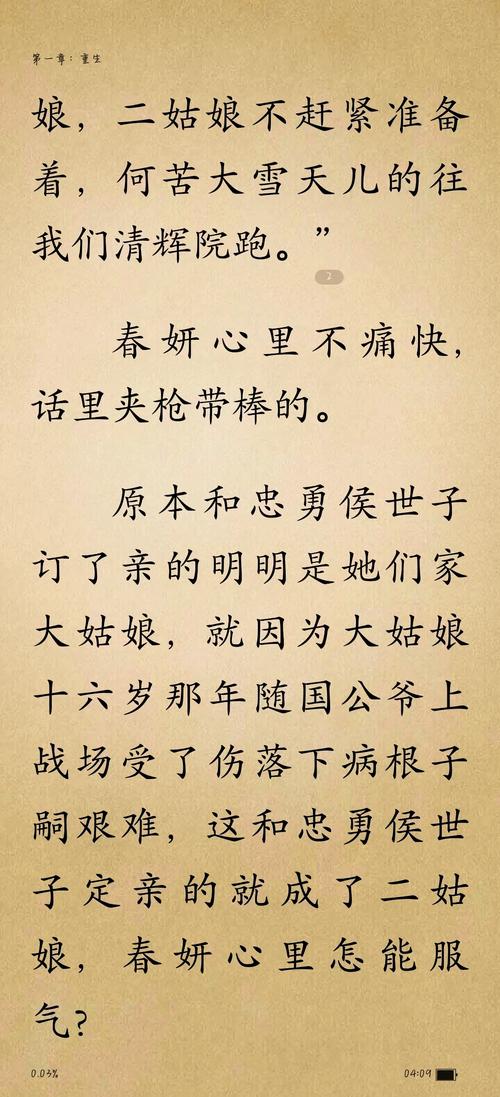 第一章：重生
娘，二姑娘不赶紧准备
着，何苦大雪天儿的往
我们清辉院跑。”
2
春妍心里不痛快，
话里夹枪带棒的。
原本和忠勇侯世子
订了亲的明明是她们家
大姑娘，就因为大姑娘
十六岁那年随国公爷上
战场受了伤落下病根子
嗣艰难，这和忠勇侯世
子定亲的就成了二姑
娘，春妍心里怎能服
气?
0.03%
04:09